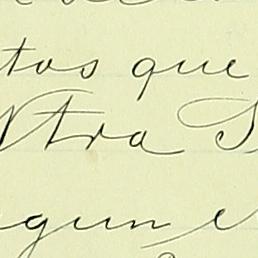 tos que
Ntra S
gun e